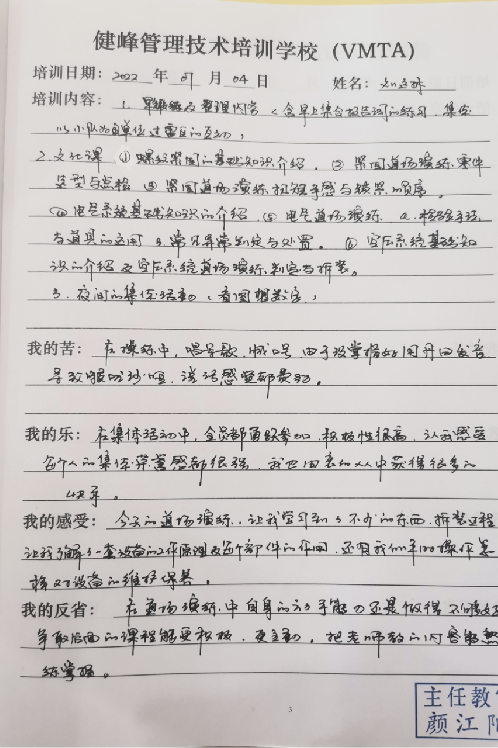 健峰管理技术培训学校（VMTA）
培训日期：2022 年 07 月 04 日
姓名：
培训内容：1. 早操练及整理内务（含早上集合报告词的练习，集体
以小队为单位过雷区的互动）
2. 文化课 ①螺丝紧固的基础知识介绍，②紧固道场演练：零件
选型与点检 ③紧固道场演练：扭矩手感与锁紧的顺序。
④电气系统基础知识的介绍 ⑤电气道场演练 a.检验手法
与道具的运用 b.常见异常判定与处置。⑥空压系统基础知
识的介绍及空压系统道场演练：判定与拆装。
3. 夜间的集体活动（看图想数字）
我的苦：在操练中，唱导歌、喊口号，由于没掌握好用丹田发音
导致喉咙沙哑，说话感觉都费劲。
我的乐：在集体活动中，全员都踊跃参加，积极性很高，认为感受
每个人的集体荣誉感都很强，我也因表现从中获得很多的
快乐。
我的感受：今天的道场演练，让我学习到了不少的东西，拆装过程
让我了解了一套设备的工作原理及每个部件的作用，还有我们平时操作怎
样对设备的维护保养。
我的反省：在道场演练中自身的动手能力还是做得不够好
争取后面的课程能更积极、更主动，把老师教的内容能熟
练掌握。
3
主任教官
颜江